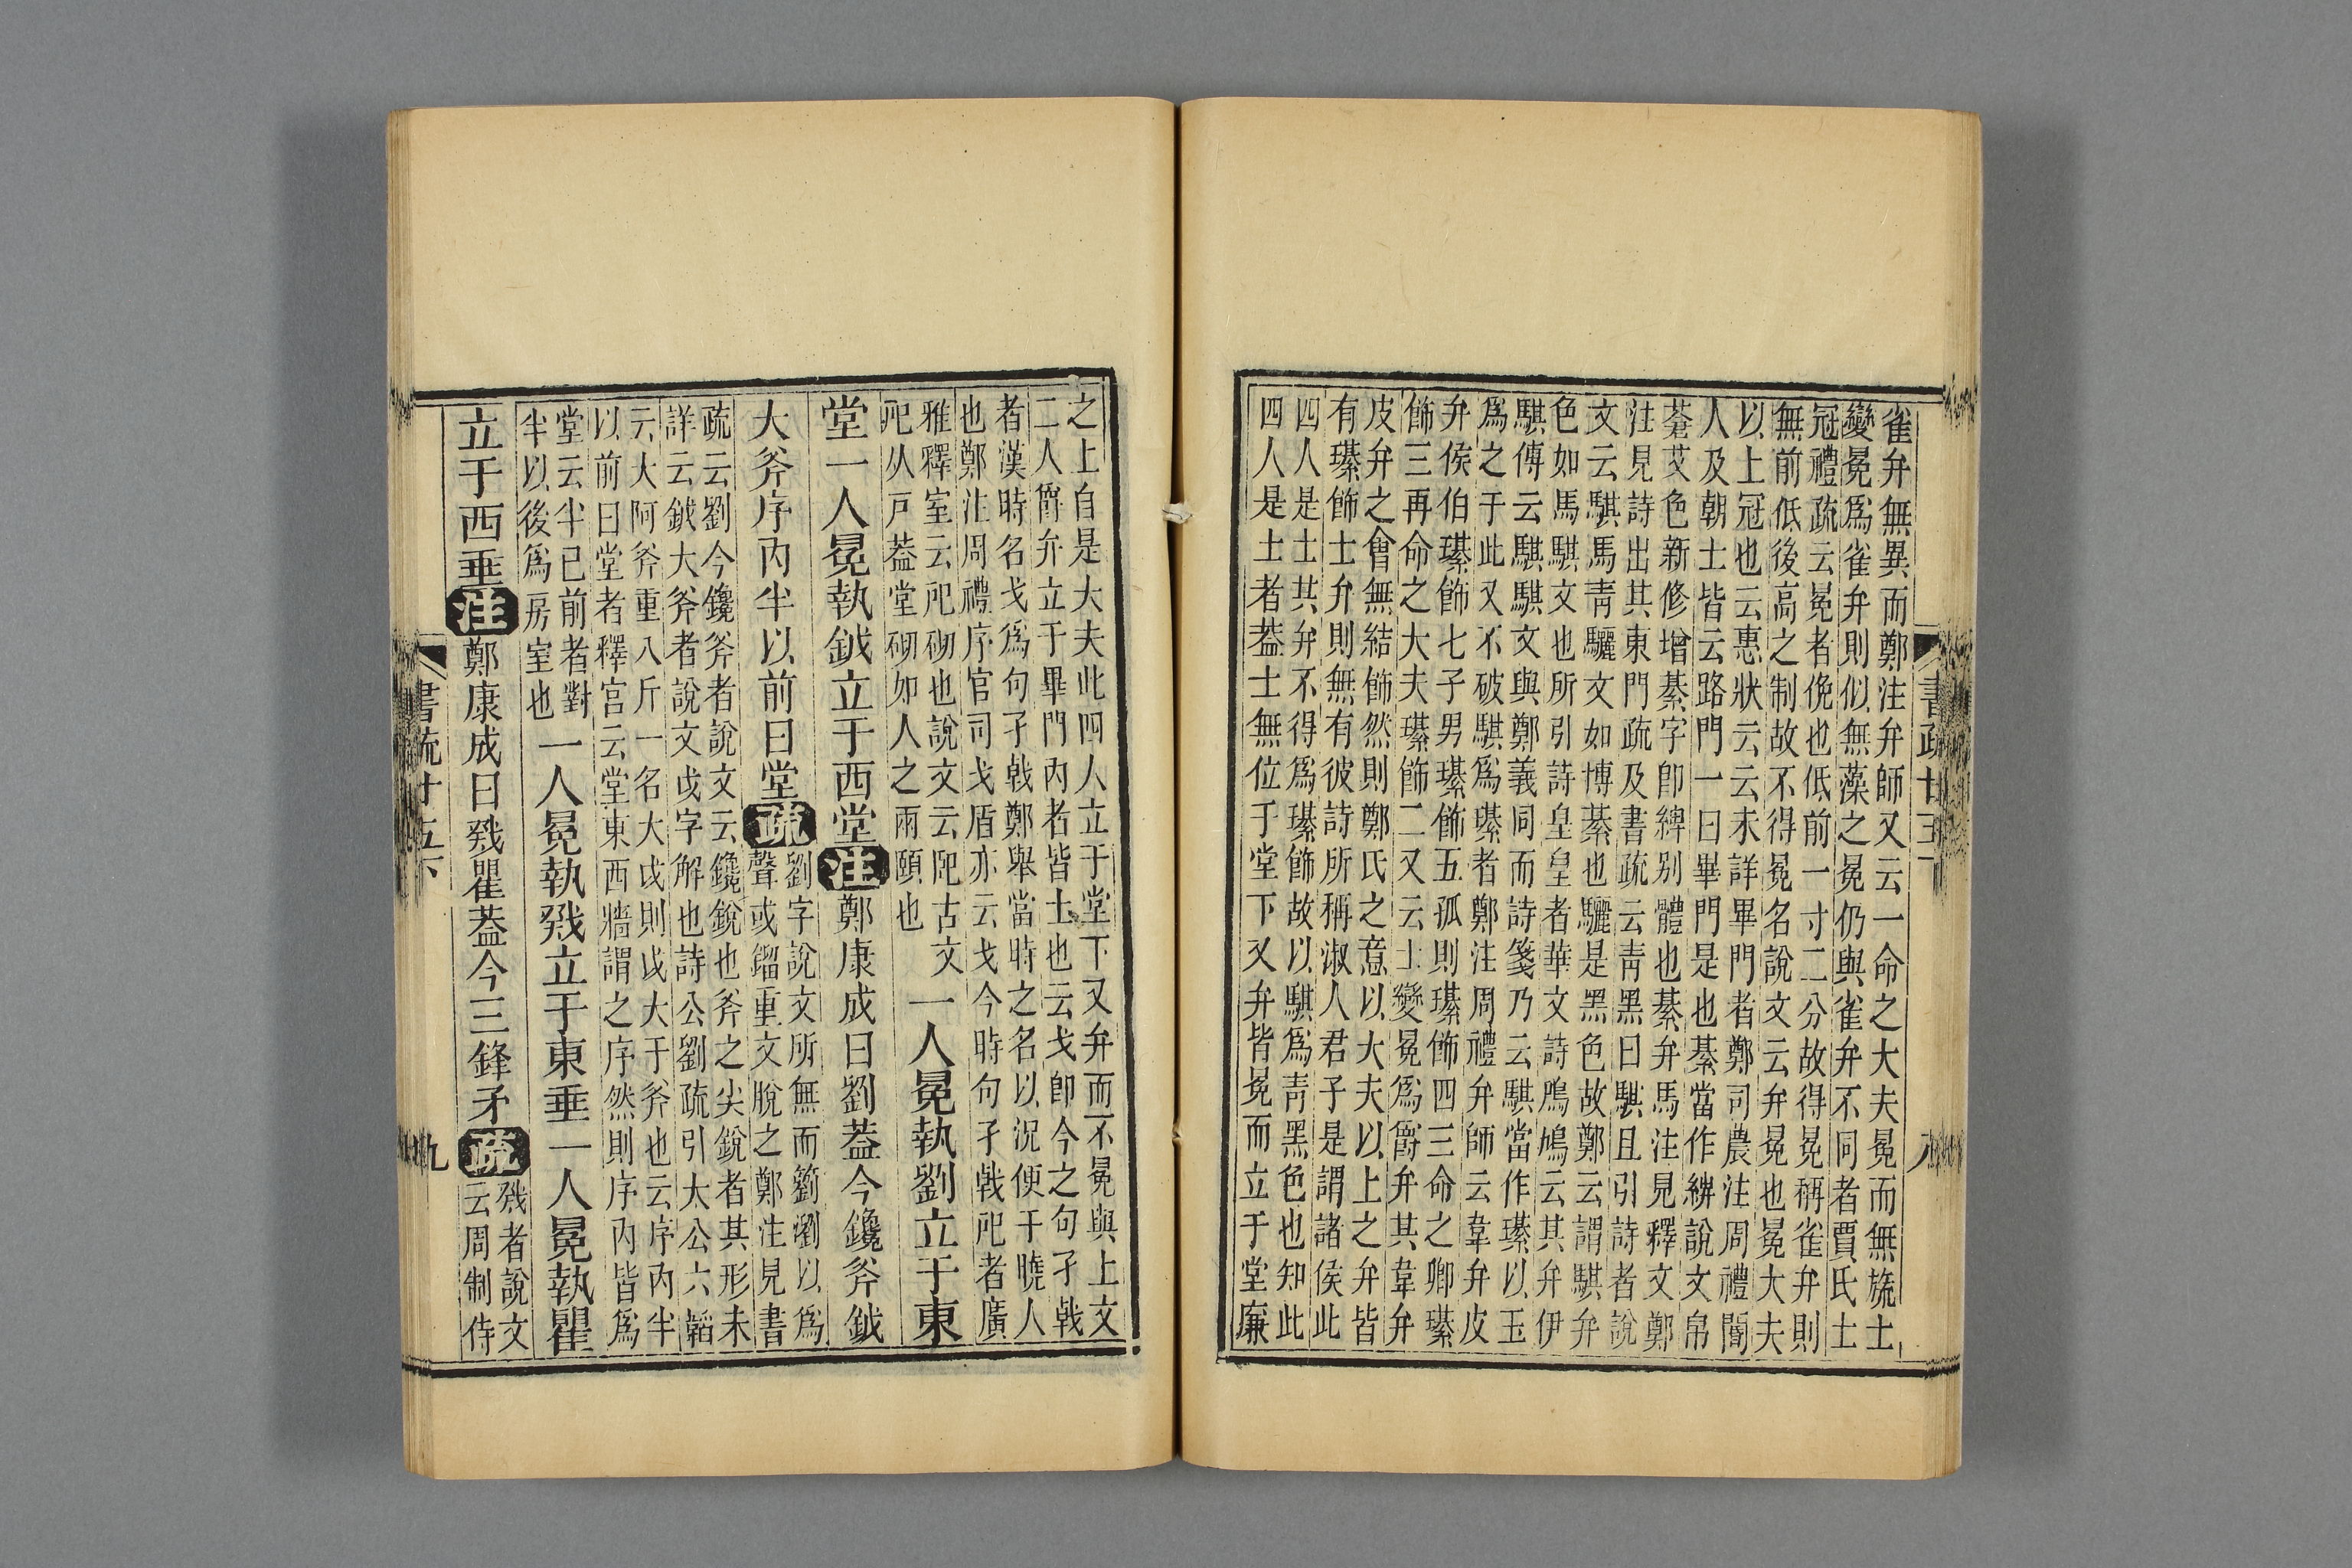 雀弁無異而鄭注弁師又云一命之大夫冕而無旒士
變冕爲雀弁則似無藻之冕仍與雀弁不同者賈氏士
冠禮疏云冕者俛也低前一寸二分故得冕稱雀弁則
無前低後高之制故不得冕名說文云弁冕也冕大夫
以上冠也云惠狀云云未詳畢門者鄭司農注周禮閽
人及朝士皆云路門一曰畢門是也綦當作綥說文帛
蒼艾色新修增綦字卽綥别體也綦弁馬注見釋文鄭
注見詩出其東門疏及書疏云靑黑曰騏且引詩者說
文云騏馬靑驪文如博綦也驪是黑色故鄭云謂騏弁
色如馬騏文也所引詩皇皇者華文詩鳲鳩云其弁伊
騏傳云騏騏文與鄭義同而詩箋乃云騏當作璂以玉
爲之于此又不破騏爲璂者鄭注周禮弁師云韋弁皮
弁侯伯璂飾七子男璂飾五孤則璂飾四三命之卿璂
飾三再命之大夫璂飾二又云士變冕爲爵弁其韋弁
皮弁之會無結飾然則鄭氏之意以大夫以上之弁皆
有璂飾士弁則無有彼詩所稱淑人君子是謂諸侯此
四人是士其弁不得爲璂飾故以騏爲靑黑色也知此
四人是士者葢士無位于堂下又弁皆冕而立于堂廉
書疏廿五下
八
之上自是大夫此四人立于堂下又弁而不冕與上文
二人爵弁立于畢門內者皆士也云戈卽今之句孑戟
者漢時名戈爲句孑戟鄭舉當時之名以況便于曉人
也鄭注周禮序官司戈盾亦云戈今時句孑戟戺者廣
雅釋室云戺砌也說文云戺古文
戺从戸葢堂砌如人之兩頤也
一人冕執劉立于東
堂一人冕執鉞立于西堂注鄭康成曰劉葢今鑱斧鉞
大斧序內半以前曰堂疏
劉字說文所無而籀瀏以爲
聲或鎦重文脫之鄭注見書
疏云劉今鑱斧者說文云鑱銳也斧之尖銳者其形未
詳云鉞大斧者說文戉字解也詩公劉疏引太公六韜
云大阿斧重八斤一名大戉則戉大于斧也云序內半
以前曰堂者釋宮云堂東西牆謂之序然則序內皆爲
堂云半已前者對
半以後爲房室也
一人冕執戣立于東垂一人冕執瞿
立于西垂注鄭康成曰戣瞿葢今三鋒矛疏
戣者說文
云周制侍
書疏廿五下
九